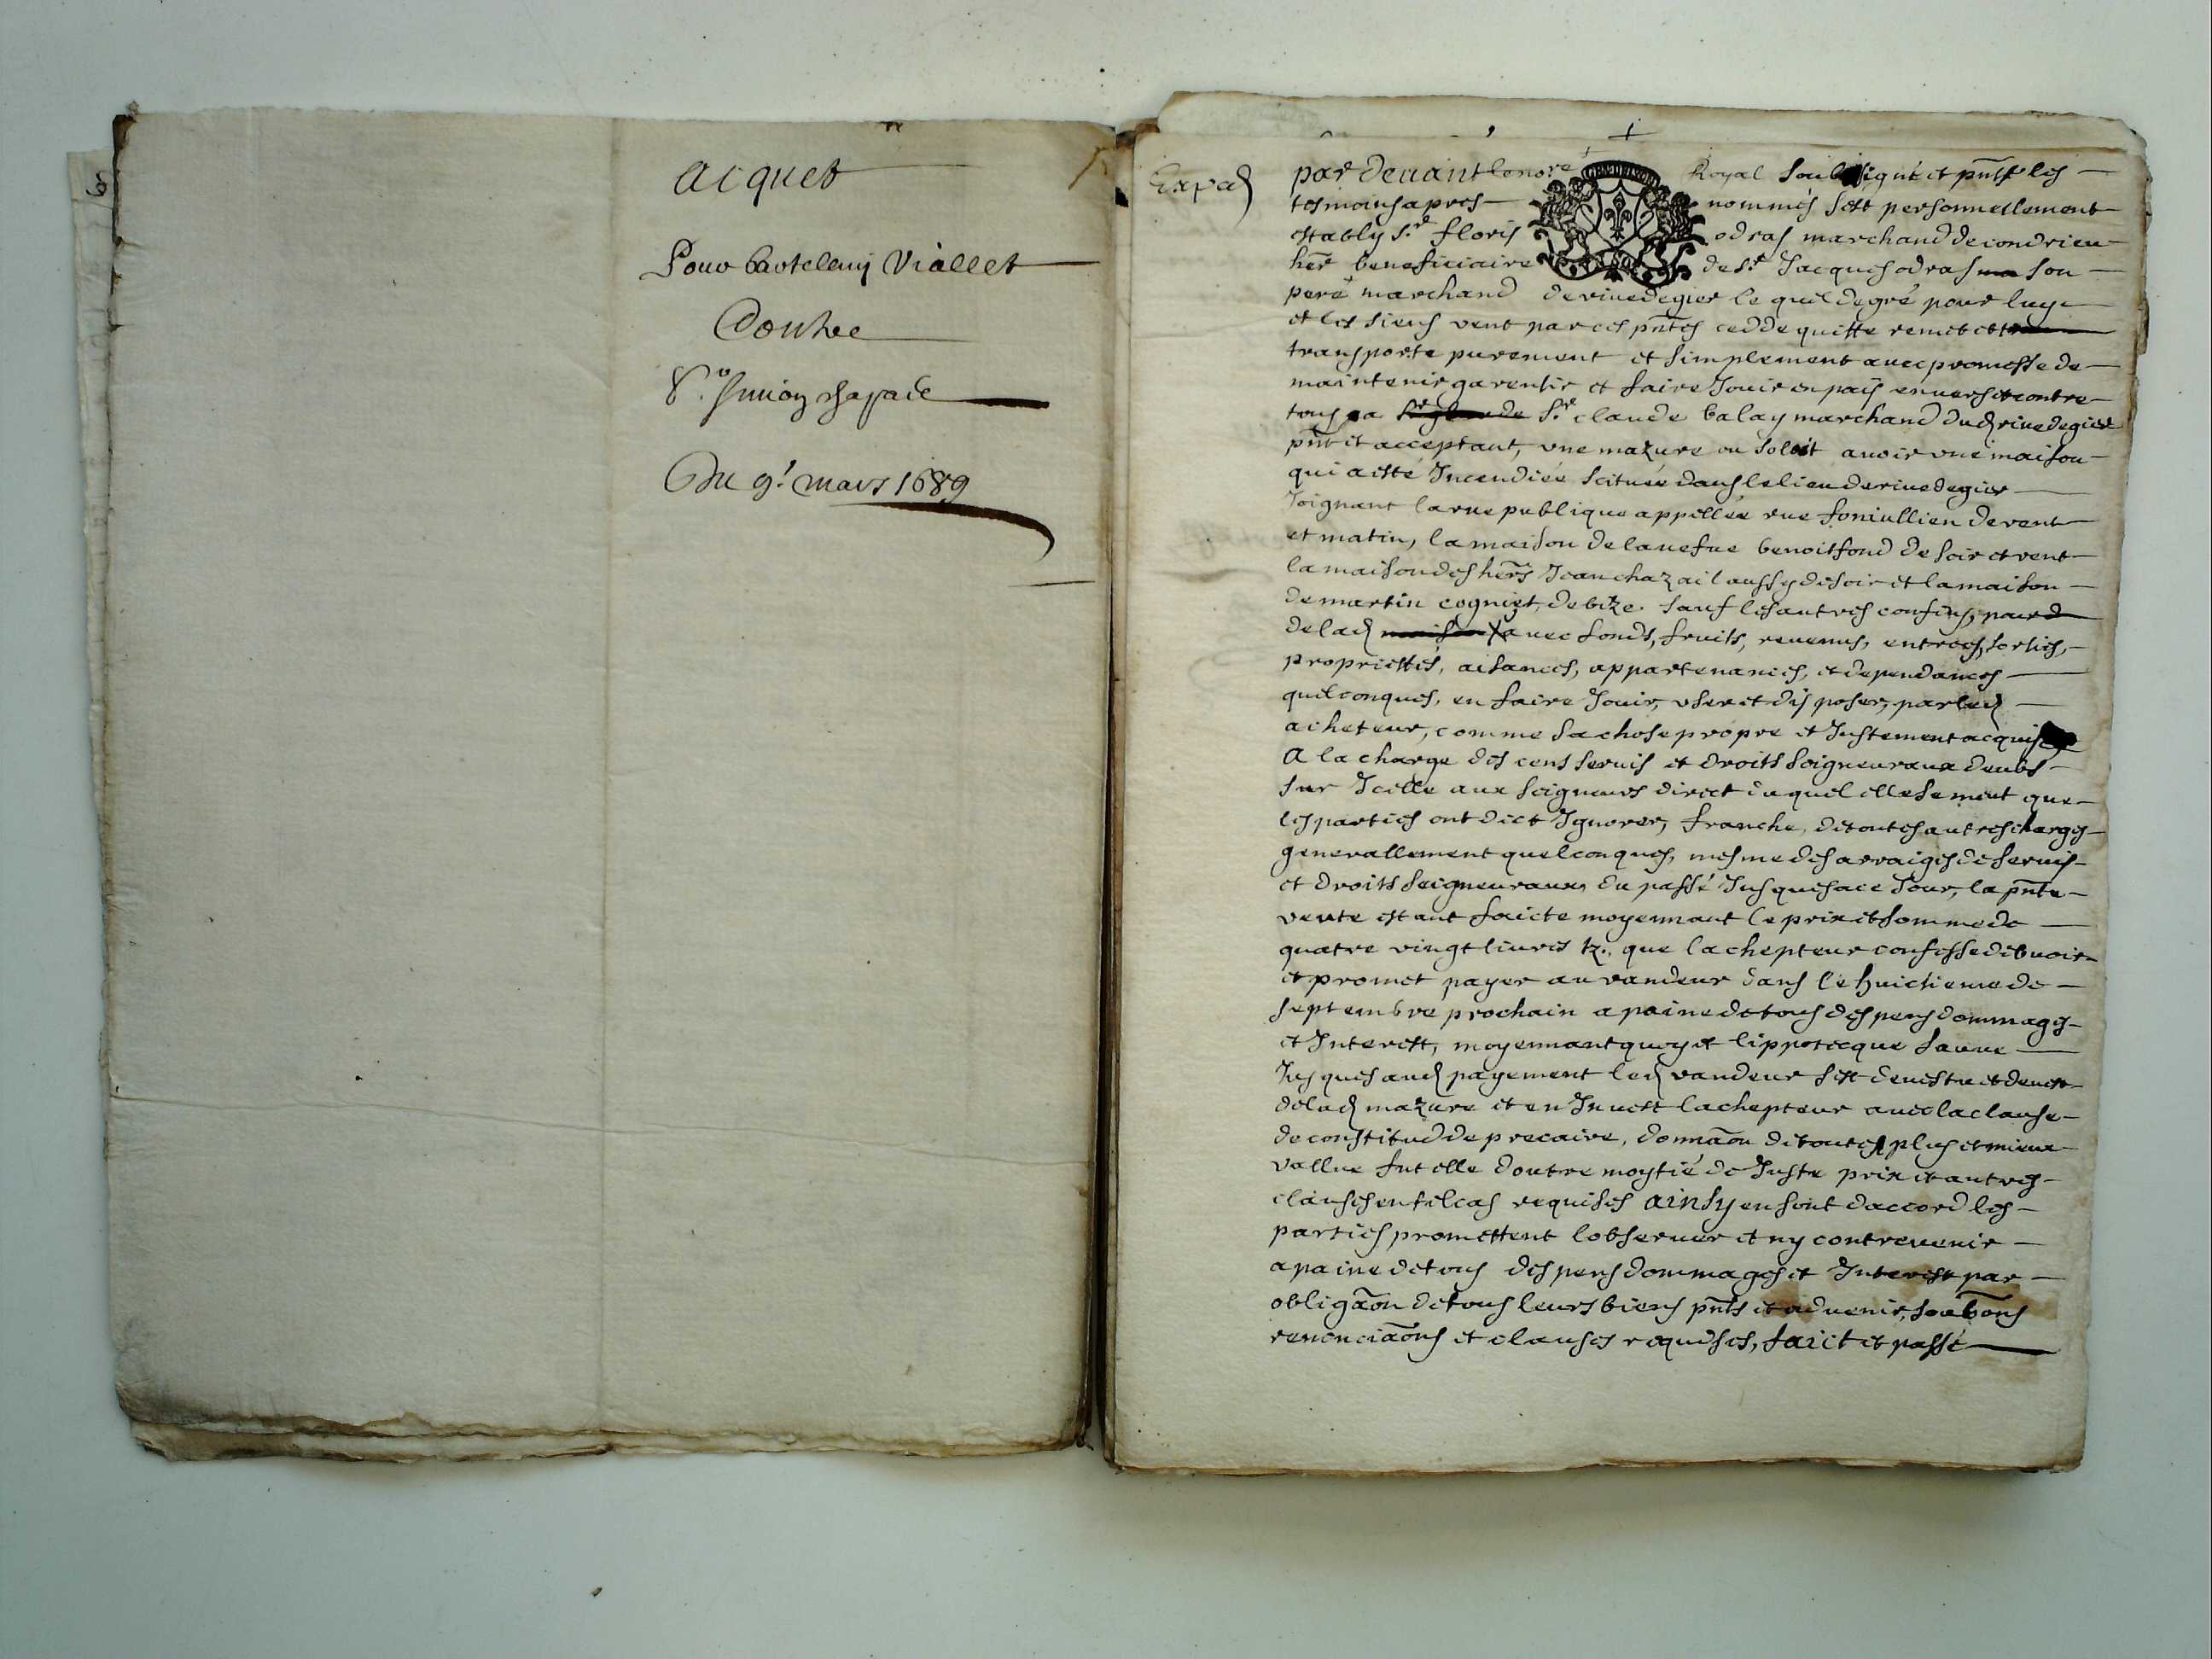 acquet
Pour bartelemy Viallet
Contre
Sr. Simon chapade
Du 9e. mars 1689
Expéd
par devant lenore Royal Soubsigné et pnts les
tesmoins apres nommés sest personnellement
estably Sr. floris odras marchand de condrieu
her beneficiaire de Sr. Jacques odras son
pere marchand de rivedegier le quel de gré pour luy
et les siens vent par ces pntes cedde quitte remet et
transporte purement et simplement avec promesse de
maintenir garentir et faire Jouir en paix envers et contre
tous a Sr. claude balay marchand dud rivedegier
pnt et acceptant, une mazure ou soloit avoir une maison
qui a esté Incendiée scituée dans le lieu de rivedegier
Joignant la rue publique appellée rue de vent
et matin, la maison de la vefue benoit fond de soir et vent
la maison des hers Jean chazail aussy de soir et la maison
de martin cogniet, de bize. sauf les autres confins,
de lad avec fonds, fruits, revenus, entrees, sorties,
propriettés, aisances, appartenances, et dependances
quelconques, en faire Jouir, user et disposer, par led
acheteur, comme sa chose propre et Justement acquise
A la charge des cens servis et droits seigneuraux deubs
sur Icelle aux seigneurs direct duquel elle se meut que
les parties ont dict Ignorer, franche, de toutes autres charges
generallement quelconques, mesme des arraiges de servis
et droits seigneuraux du passé Jusques a ce Jour, la pnte
vente estant faicte moyennant le prix et somme de
quatre vingt livres tz., que lachepteur confesse debvoir
et promet payer au vandeur dans le huictieme de
septembre prochain a paine de tous despens dommages
et Interest, moyennant quoy et lippotecque sauve
Jusques aud payement led vandeur sest devestu et devest
de lad mazure et en Invest lachepteur avec la clause
de constitud de precaire, donnaon de toutes plus et mieux
vallue fut elle doutre moytié de Juste prix et autres
clauses en tel cas requises ainsy en sont daccord les
parties promettent lobserver et ny contrevenir
a paine de tous despens dommages et Interest par
obligaon de tous leurs biens pnts et advenir,
renonciaons et clauses requises, faict et passé